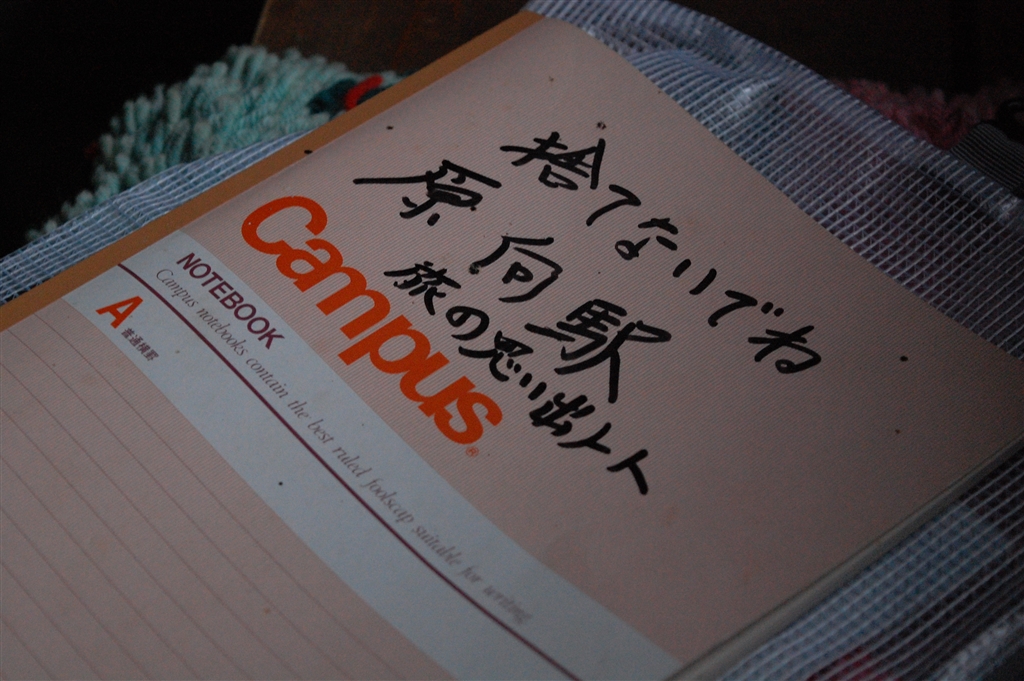 捨てないでね
原向駅
旅の思い出ノート
Campus®
NOTEBOOK
Campus notebooks contain the best ruled foolscap suitable for writing
A
普通横罫